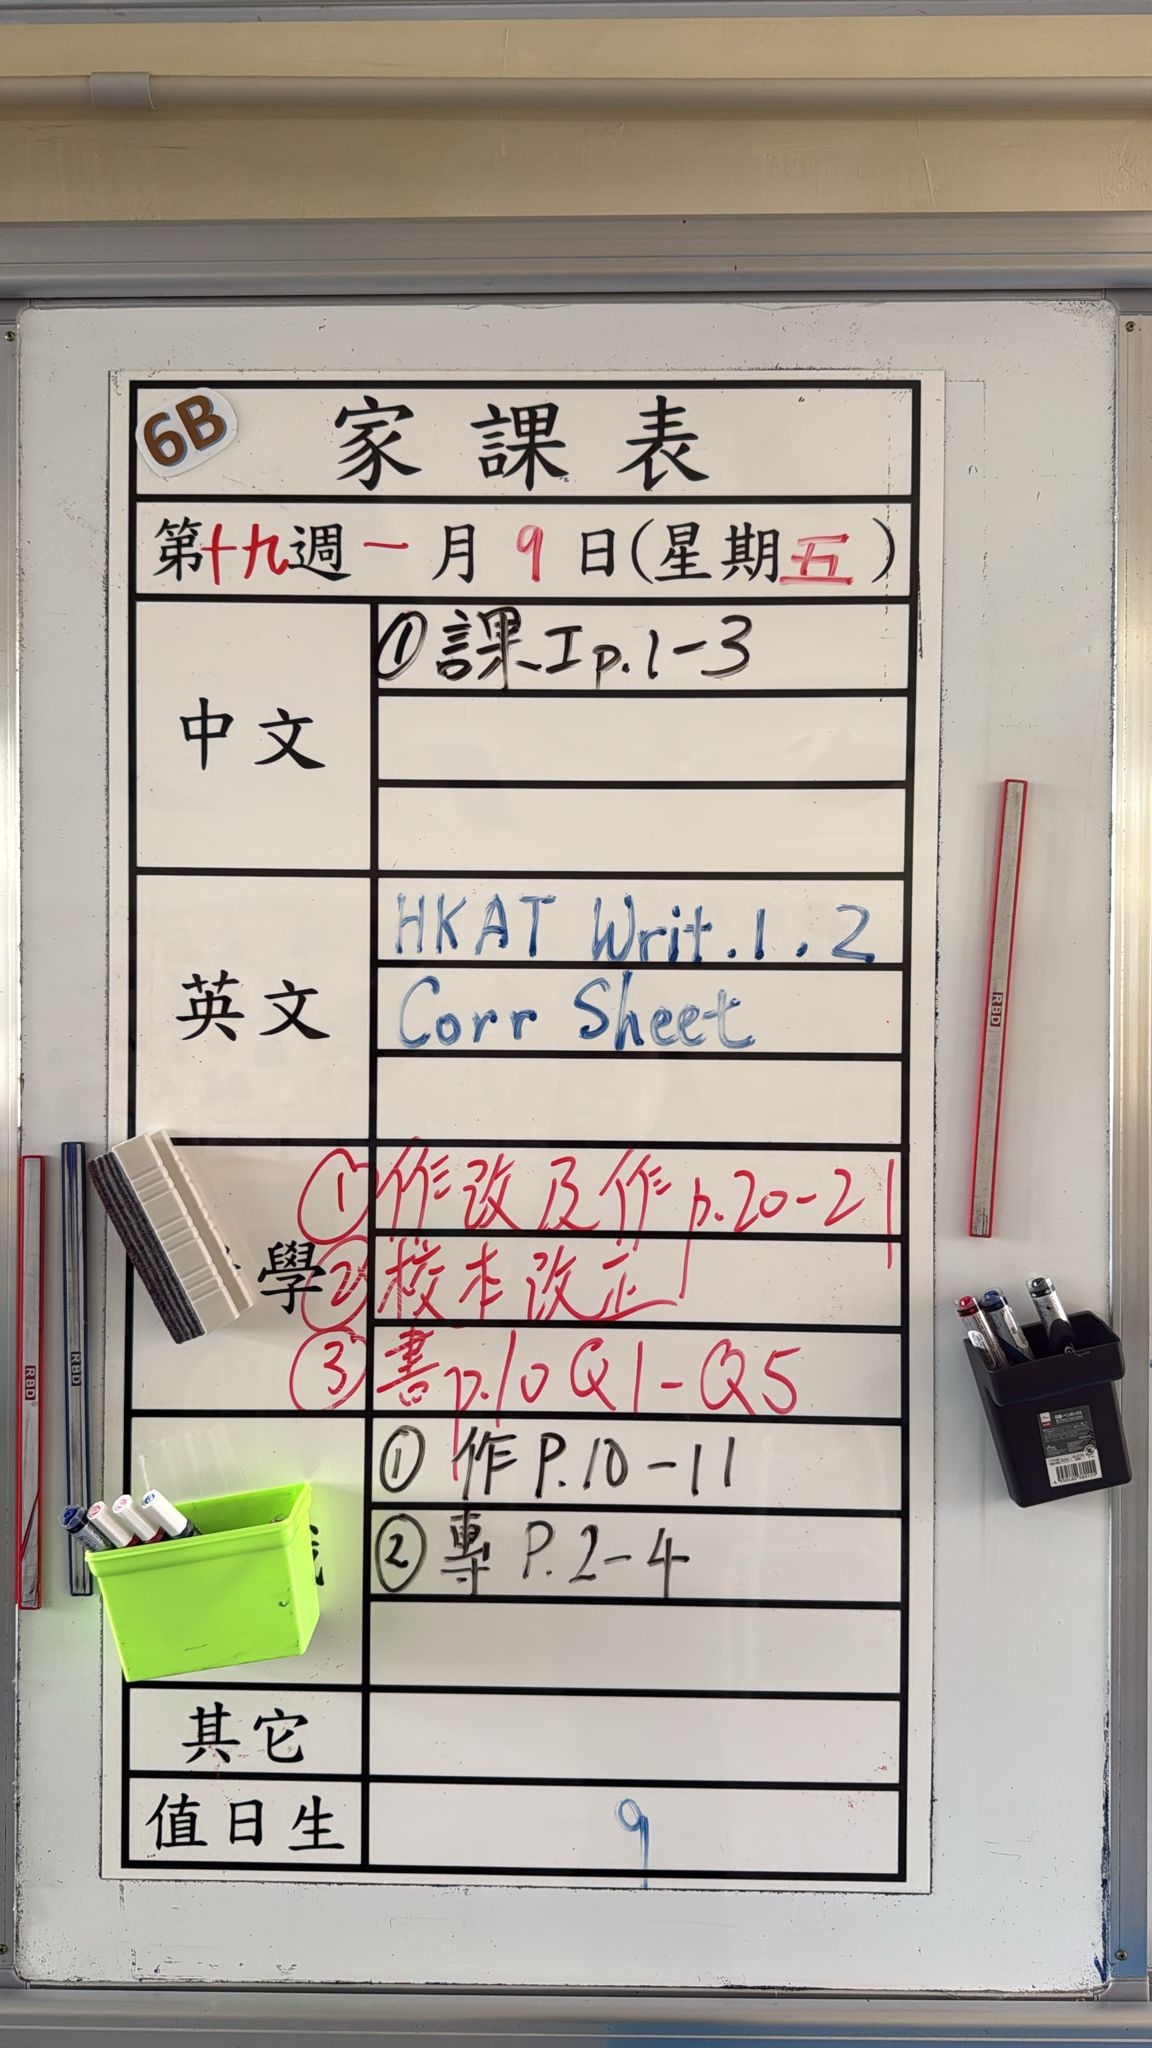 6B
家課表
第十九週一月9日(星期五)
中文
①課Ip.1-3
英文
HKAT Writ.1.2
Corr Sheet
學
①作改及作p.20-21
②校本改正
③書p.10 Q1-Q5
①作P.10-11
②專P.2-4
其它
值日生
9
RBD
RBD
RBD